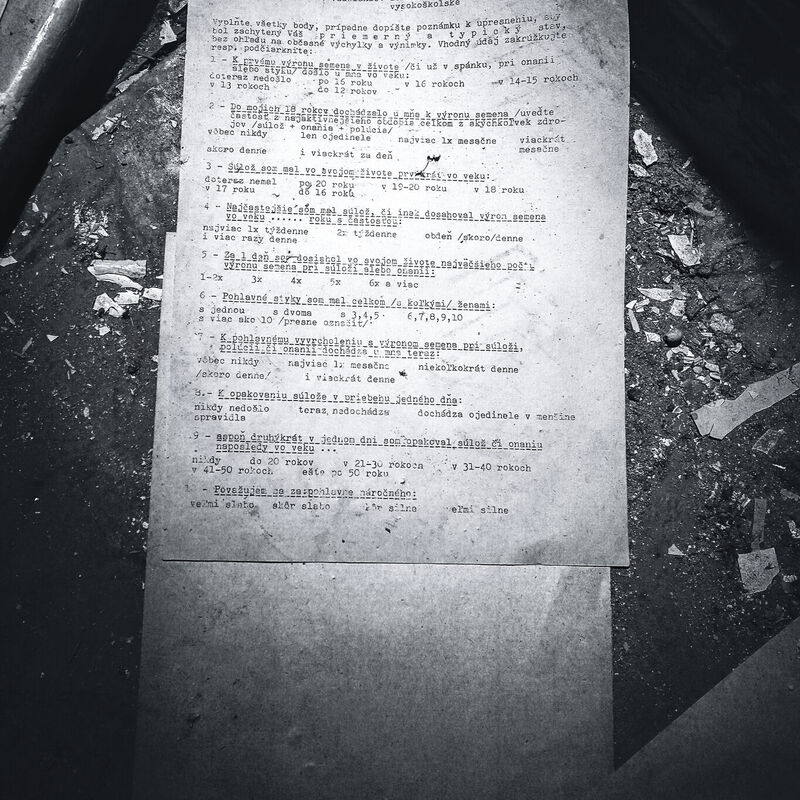 vysokoškolské
Vyplňte všetky body, prípadne dopíšte poznámku k upresneniu, aby
bol zachytený Váš p r i e m e r n ý a t y p i c k ý stav,
bez ohľadu na občasné výchylky a výnimky. Vhodný údaj zakrúžkujte
resp. podčiarknite:
1 - K prvému výronu semena v živote /či už v spánku, pri onanii
alebo styku/ došlo u mňa vo veku:
doteraz nedošlo po 16 roku v 16 rokoch v 14-15 rokoch
v 13 rokoch do 12 rokov
2 - Do mojich 18 rokov dochádzalo u mňa k výronu semena /uveďte
častosť z najaktívnejšieho obdobia celkom z akýchkoľvek zdro-
jov /súlož + onania + polúcia/
vôbec nikdy len ojedinele najviac 1x mesačne viackrát
mesačne
skoro denne i viackrát za deň
3 - Súlož som mal vo svojom živote prvýkrát vo veku:
doteraz nemal po 20 roku v 19-20 roku v 18 roku
v 17 roku do 16 roku
4 - Najčastejšie som mal súlož, či inak dosahoval výron semena
vo veku ...... roku s častosťou:
najviac 1x týždenne 2x týždenne obdeň /skoro/denne
i viac razy denne
5 - Za 1 deň som dosiahol vo svojom živote najväčšieho počtu
výronu semena pri súloži alebo onanii:
1-2x 3x 4x 5x 6x a viac
6 - Pohlavné styky som mal celkom /s koľkými/ ženami:
s jednou s dvoma s 3,4,5 6,7,8,9,10
s viac ako 10 /presne označiť/
7 - K pohlavnému vyvrcholeniu s výronom semena pri súloži,
polúcii či onanii dochádza u mňa teraz:
vôbec nikdy najviac 1x mesačne niekoľkokrát denne
/skoro denne/ i viackrát denne
8.- K opakovaniu súlože v priebehu jedného dňa:
nikdy nedošlo teraz nedochádza dochádza ojedinele v menšine
spravidla
9 - aspoň druhýkrát v jednom dni som opakoval súlož či onaniu
naposledy vo veku ...
nikdy do 20 rokov v 21-30 rokoch v 31-40 rokoch
v 41-50 rokoch ešte po 50 roku
- Považujem sa za pohlavne náročného:
veľmi slabo skôr slabo skôr silne veľmi silne